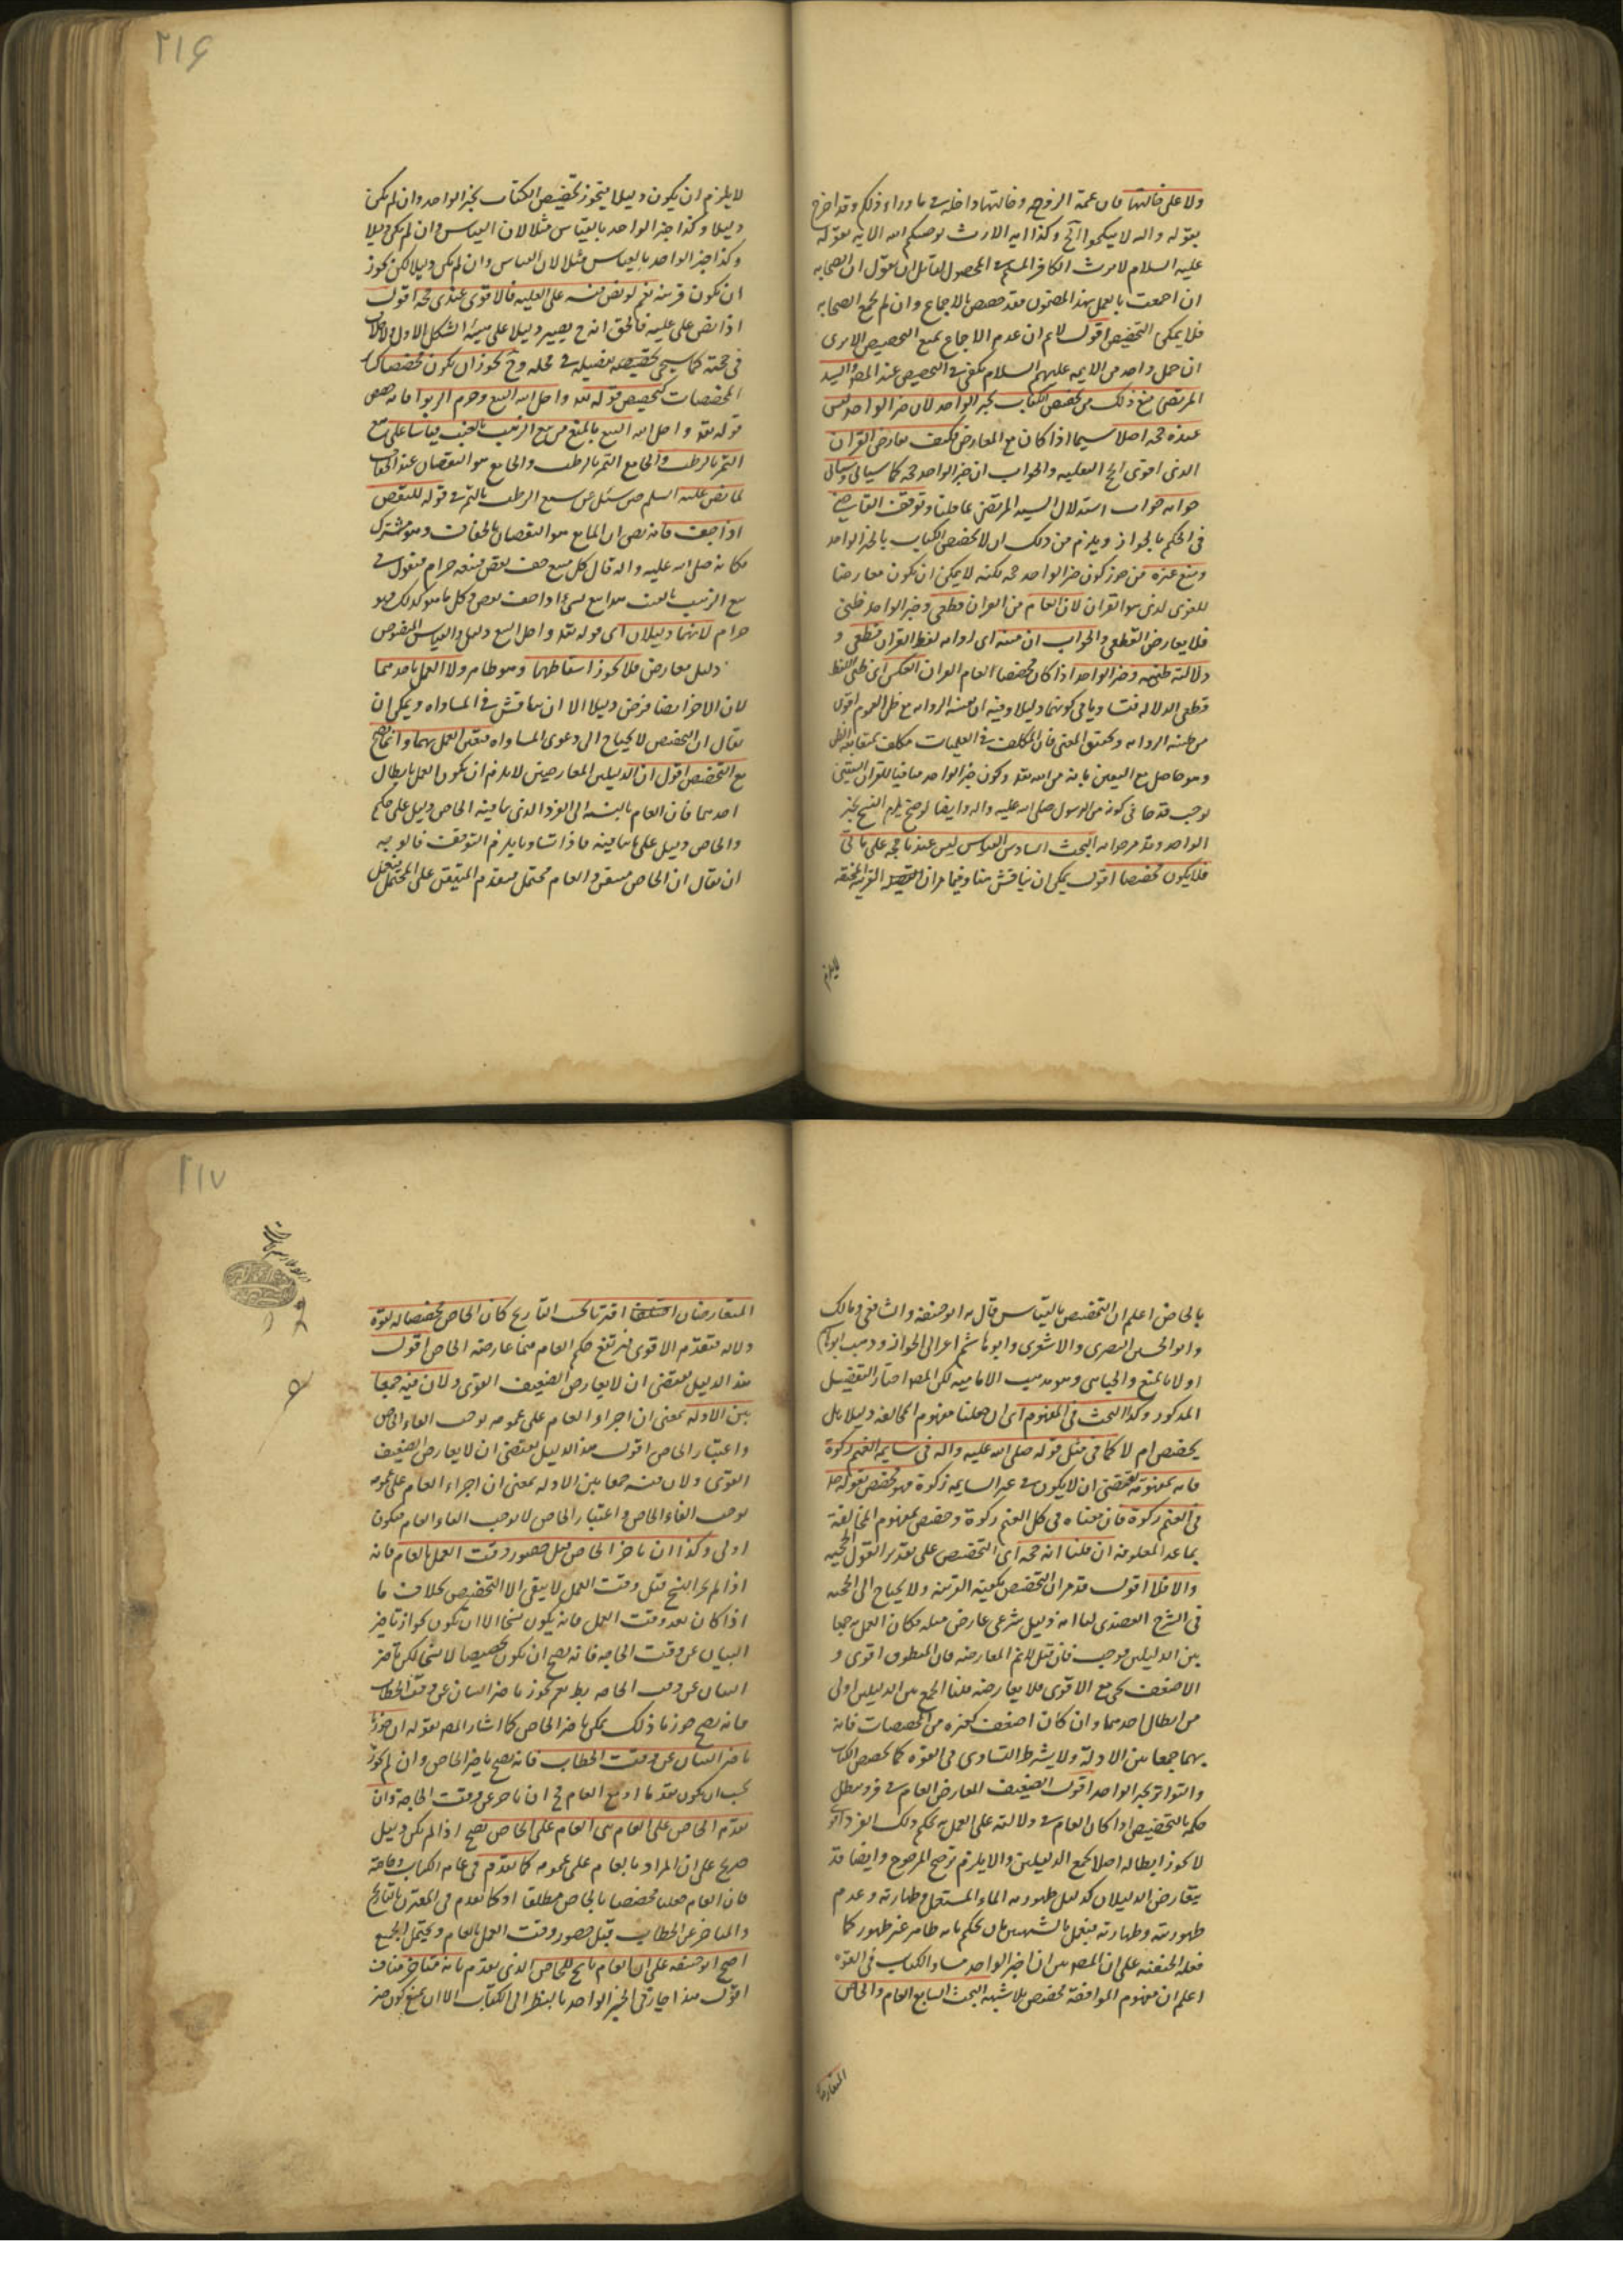 ولا على خالتها فان عمة الزوجه وخالتها داخله فى ما وراء ذلكم وقد اخرج
بقوله واله لا ينكحوا الخ وكذا ايه الارث يوصيكم الله الايه بقوله
عليه السلام لا يرث الكافر المسلم فى المحصول لقائل ان يقول ان الصحابه
ان اجمعت بالعمل بهذا المضمون فقد خصص بالاجماع وان لم يجمع الصحابه
فلا يمكن التخصيص اقول لا نم ان عدم الاجماع يمنع التخصيص الا يرى
ان حمل واحد من الايمه عليهم السلام يكفى فى التخصيص عند المص والسيد
المرتضى منع ذلك من تخصيص الكتاب بخبر الواحد لان خبر الواحد ليس
عنده حجه اصلا سيما اذا كان مع المعارض فكيف يعارض القران
الذى اقوى الحجج النقليه والجواب ان خبر الواحد حجه كما سياتى وسياتى
جوابه جواب استدلال السيد المرتضى عما قلنا وتوقف القاضى
فى الحكم بالجواز ويلزم من ذلك ان لا يخصص الكتاب بالخبر الواحد
ومنع غيره من جوز كون خبر الواحد حجه لكنه لا يمكن ان يكون معارضا
للقوى الذى هو القران لان العام من القران قطعى وخبر الواحد ظنى
فلا يعارض القطعى والجواب ان متنه اى رواية لفظ القران قطعى و
دلالته ظنيه وخبر الواحد اذا كان مخصصا لعام القران بالعكس اى ظنى اللفظ
قطعى الدلاله فتساويا فى كونهما دليلا وفيه ان ظنيه الروايه مع ظن العموم اقوى
من ظنيه الروايه وتحقيق المعنى فان المكلف فى العلميات مكلف بمتابعة الظن
وهو حاصل مع اليقين بانه من الله تعالى وكون خبر الواحد منافيا للقران اليقينى
يوجب قدحا فى كونه من الرسول صلى الله عليه واله وايضا لو صح يلزم النسخ بخبر
الواحد وقد مر جوابه البحث السادس القياس ليس عندنا حجه على ما ياتى
فلا يكون مخصصا اقول يمكن ان يناقش هنا وفيما مر ان القرينه المخصصه
لا يلزم
٢١۶
لا يلزم ان يكون دليلا فيجوز تخصيص الكتاب بخبر الواحد وان لم يكن
دليلا وكذا خبر الواحد بالقياس مثلا لان القياس وان لم يكن دليلا
وكذا خبر الواحد بالقياس مثلا لان القياس وان لم يكن دليلا لكن يجوز
ان يكون قرينه نعم لو نص فيه على العليه فالاقوى عندى حجه اقول
اذا نص على عليه فالحق انه ح يصير دليلا على هيئة الشكل الاول ولا خلاف
فى حجته كما سيجى تحقيقه تفصيله فى محله وح يجوز ان يكون مخصصا كسائر
المخصصات كتخصيص قوله تعالى واحل الله البيع وحرم الربوا فانه خصص
قوله تعالى واحل الله البيع بالمنع من بيع الزبيب بالعنب قياسا على بيع
التمر بالرطب والجامع التمر بالرطب والجامع هو النقصان عند الجفاف
لما نص عليه السلم حين سئل عن بيع الرطب بالتمر فى قوله اينقص
اذا جف فانه نص ان المانع هو النقصان بالجفاف وهو مشترك
فكانه صلى الله عليه واله قال كل مبيع جف نقص فبيعه حرام فنقول فى
بيع الزبيب بالعنب هذا بيع لشىء اذا جف نقص وكل ما هو كذلك فهو
حرام لانهما دليلان اى قوله تعالى واحل الله البيع دليل والقياس المنصوص
دليل معارض فلا يجوز اسقاطهما وهو ظاهر ولا العمل باحدهما
لان الاخر ايضا فرض دليلا الا ان يناقش فى المساواه ويمكن ان
يقال ان التخصيص لا يحتاج الى دعوى المساواه فتعين العمل بهما وانما يصح
مع التخصيص اقول ان الدليلين المعارضين لا يلزم ان يكون العمل بابطال
احدهما فان العام بالنسبه الى الفرد الذى ينافيه الخاص دليل على حكم
والخاص دليل على ما ينافيه فاذا تساويا يلزم التوقف فالوجه
ان يقال ان الخاص متيقن والعام محتمل فيقدم المتيقن على المحتمل فيعمل
بالخاص اعلم ان التخصيص بالقياس قال به ابو حنيفه والشافعى ومالك
وابو الحسين البصرى والاشعرى وابو هاشم اخرا الى الجواز وذهب ابو هاشم
اولا بالمنع والجبائى وهو مذهب الاماميه لكن المص اختار التفضيل
المذكور وكذا البحث فى المفهوم اى ان جعلنا مفهوم المخالفه دليلا هل
يخصص ام لا كما فى مثل قوله صلى الله عليه واله فى سايمه الغنم زكوة
فانه بمفهومه يقتضى ان لا يكون فى غير السايمه زكوة فهو مخصص بقوله
فى الغنم زكوة فان معناه فى كل الغنم زكوة وخصص بمفهوم المخالفة
بما عدا المعلوفه ان قلنا انه حجه اى التخصيص على تقدير القول بالحجيه
والا فلا اقول قد مر ان التخصيص يكفيه القرينه ولا يحتاج الى الحجيه
فى الشرح العضدى لنا انه دليل شرعى عارض مثله فكان العمل به جمعا
بين الدليلين فوجب فان قيل لا نم المعارضه فان المنطوق اقوى و
الاضعف يمحى مع الاقوى فلا يعارضه قلنا الجمع بين الدليلين اولى
من ابطال احدهما وان كان اضعف كغيره من المخصصات فانه
بهما جمعا بين الادلة ولا يشترط التساوى فى القوه كما يخصص الكتاب
والتواتر بخبر الواحد اقول الضعيف المعارض للعام فى فرد يبطل
حكمه بالتخصيص اذا كان العام فى دلالته على العمل به بحكم ذلك الفرد
لا يجوز ابطاله اصلا لجمع الدليلين والا يلزم ترجيح المرجوح وايضا قد
يتعارض الدليلان كدليل طهوريه الماء المستعمل وطهارته وعدم
طهوريته وطهارته فيعمل بالشبهين بان يحكم بانه طاهر غير طهور كما
فعله الحنفيه على ان المص بين ان خبر الواحد مساو للكتاب فى القوه
اعلم ان مفهوم الموافقة مخصص بلا شبهه البحث السابع العام والخاص
المتعارضان
٢١٧
المتعارضان اقترنا بحسب التاريخ كان الخاص مخصصا له لقوة
دلالته فتقدم الاقوى فيرتفع حكم العام فيما عارضه الخاص اقول
هذا الدليل يقتضى ان لا يعارض الضعيف القوى ولان فيه جمعا
بين الادله بمعنى ان اجراء العام على عمومه يوجب الغاء الخاص
واعتبار الخاص اقول هذا الدليل يقتضى ان لا يعارض الضعيف
القوى ولان فيه جمعا بين الادله بمعنى ان اجراء العام على عمومه
يوجب الغاء الخاص واعتبار الخاص لا يوجب الغاء العام فيكون
اولى وكذا ان تاخر الخاص قبل حضور وقت العمل بالعام فانه
اذا لم يجز النسخ قبل وقت العمل لا يبقى الا التخصيص بخلاف ما
اذا كان بعد وقت العمل فانه يكون نسخا الا ان يكون بجواز تاخير
البيان عن وقت الحاجه فانه يصح ان يكون تخصيصا لا نسخا لكن تاخير
البيان عن وقت الحاجه بط نعم يجوز تاخير البيان عن وقت الخطاب
فانه يصح جوزنا ذلك يمكن تاخير الخاص كما اشار المص بقوله ان جوزنا
تاخير البيان عن وقت الخطاب فانه يصح تاخير الخاص وان لم يجوز
يجب ان يكون مقدما او مع العام فى ان تاخر عن وقت الحاجة وان
تقدم الخاص على العام بنى العام على الخاص نصح اذا لم يكن دليل
صريح على ان المراد بالعام على عمومه كما تقدم فى عام الكتاب وخاصه
فان العام جعلنا مخصصا بالخاص مطلقا او كما تقدم فى المقترن بالتاريخ
والمتاخر عن الخطاب قبل حضور وقت العمل بالعام ويحتمل الجميع
احتج ابو حنيفه على ان العام ناسخ للخاص الذى تقدم بانه متاخر مناف
اقول هذا جار فى الخبر الواحد بالنظر الى الكتاب الا ان يمنع كون خبر